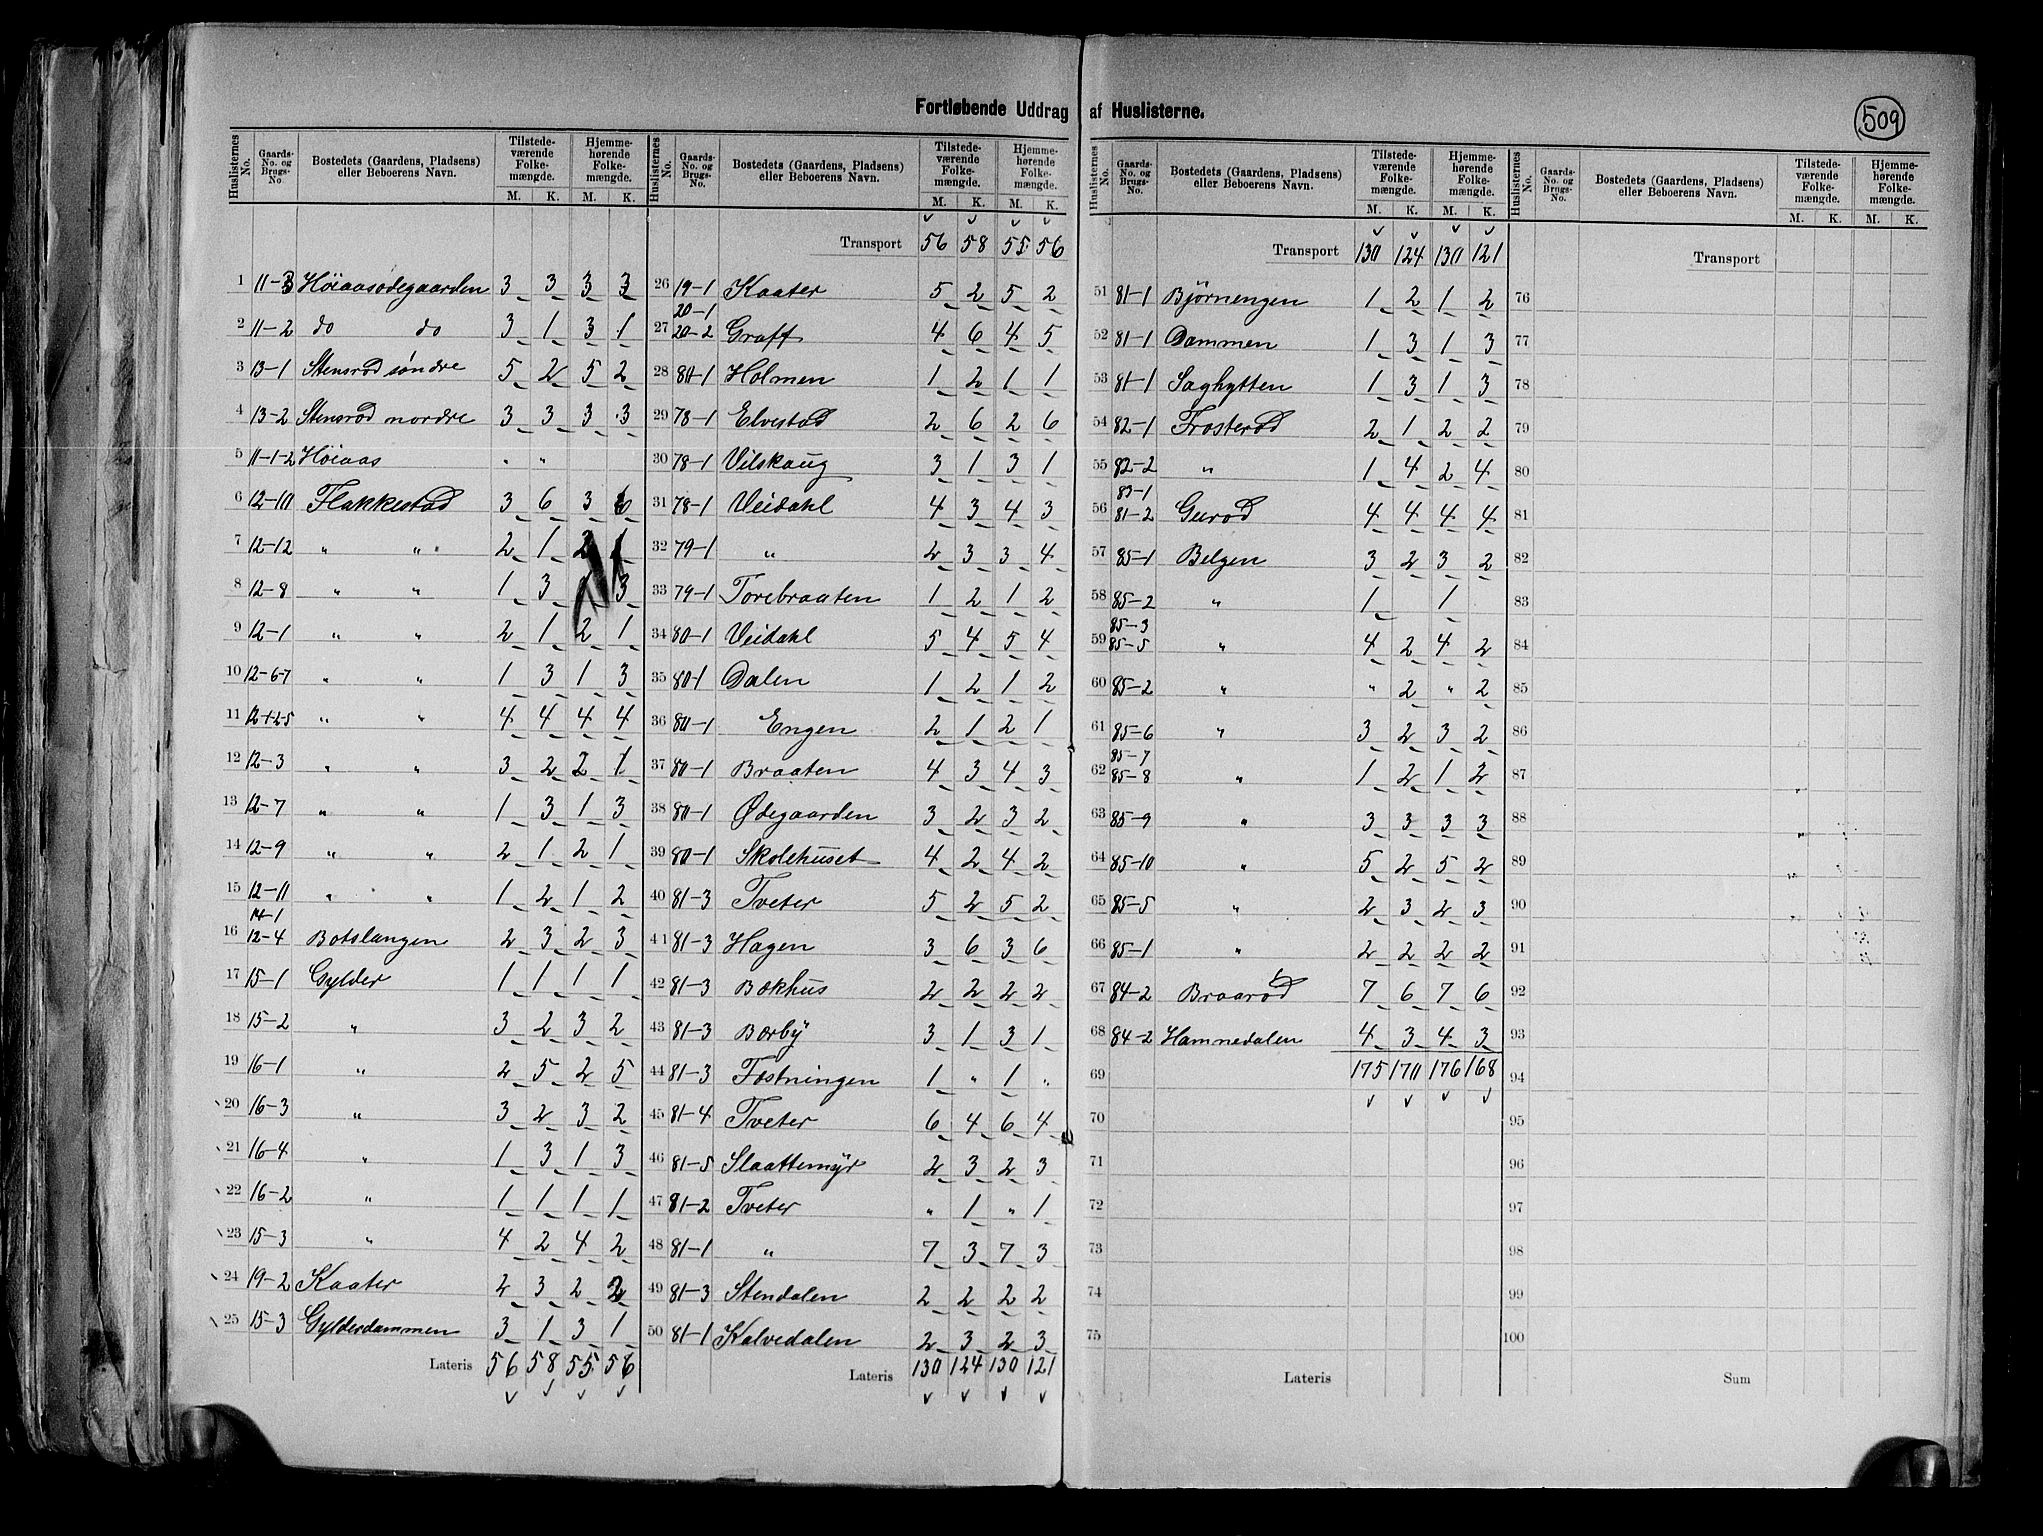 Fortløbende Uddrag af Huslisterne.
509
Huslisternes No. Gaards-No. og Brugs-No. Bostedets (Gaardens, Pladsens) eller Beboerens Navn. Tilstedeværende Folkemængde. M. K. Hjemmehørende Folkemængde. M. K.
1 11-3 Höiaasødegaarden 3 3 3 3
2 11-2 do do 3 1 3 1
3 13-1 Stensrød søndre 5 2 5 2
4 13-2 Stensrød nordre 3 3 3 3
5 11-1-2 Höiaas " "
6 12-10 Flakkestad 3 6 3 6
7 12-12 " " 2 1 2 1
8 12-8 " " 1 3 1 3
9 12-1 " " 2 1 2 1
10 12-6-7 " " 1 3 1 3
11 12-1-2-5 " " 4 4 4 4
12 12-3 " " 3 2 2 1
13 12-7 " " 1 3 1 3
14 12-9 " " 2 1 2 1
15 12-11 " " 1 2 1 2
14-1
16 12-4 Botslangen 2 3 2 3
17 15-1 Gylder 1 1 1 1
18 15-2 " 3 2 3 2
19 16-1 " 2 5 2 5
20 16-3 " 3 2 3 2
21 16-4 " 1 3 1 3
22 16-2 " 1 1 1 1
23 15-3 " 4 2 4 2
24 19-2 Kaater 2 3 2 2
25 15-3 Gylderdammen 3 1 3 1
Lateris 56 58 55 56
Huslisternes No. Gaards-No. og Brugs-No. Bostedets (Gaardens, Pladsens) eller Beboerens Navn. Tilstedeværende Folkemængde. M. K. Hjemmehørende Folkemængde. M. K.
Transport 56 58 55 56
26 19-1 Kaater 5 2 5 2
20-1
27 20-2 Graff 4 6 4 5
28 80-1 Holmen 1 2 1 1
29 78-1 Elvestad 2 6 2 6
30 78-1 Vilskaug 3 1 3 1
31 78-1 Veidahl 4 3 4 3
32 79-1 " 2 3 3 4
33 79-1 Torebraaten 1 2 1 2
34 80-1 Veidahl 5 4 5 4
35 80-1 Dalen 1 2 1 2
36 80-1 Engen 2 1 2 1
37 80-1 Braaten 4 3 4 3
38 80-1 Ødegaarden 3 2 3 2
39 80-1 Skolehuset 4 2 4 2
40 81-3 Tveter 5 2 5 2
41 81-3 Hagen 3 6 3 6
42 81-3 Bækhus 2 2 2 2
43 81-3 Bærby 3 1 3 1
44 81-3 Fæstningen 1 " 1 "
45 81-4 Tveter 6 4 6 4
46 81-5 Slaattemyr 2 3 2 3
47 81-2 Tveter " 1 " 1
48 81-1 " 7 3 7 3
49 81-3 Stendalen 2 2 2 2
50 81-1 Kalvedalen 2 3 2 3
Lateris 130 124 130 121
Huslisternes No. Gaards-No. og Brugs-No. Bostedets (Gaardens, Pladsens) eller Beboerens Navn. Tilstedeværende Folkemængde. M. K. Hjemmehørende Folkemængde. M. K.
Transport 130 124 130 121
51 81-1 Björnengen 1 2 1 2
52 81-1 Dammen 1 3 1 3
53 81-1 Saghytten 1 3 1 3
54 82-1 Frosterød 2 1 2 2
55 82-2 " 1 4 2 4
83-1
56 81-2 Gurød 4 4 4 4
57 85-1 Belgen 3 2 3 2
58 85-2 " 1 1
85-3
59 85-5 " 4 2 4 2
60 85-2 " " 2 " 2
61 85-6 " 3 2 3 2
85-7
62 85-8 " 1 2 1 2
63 85-9 " 3 3 3 3
64 85-10 " 5 2 5 2
65 85-5 " 2 3 2 3
66 85-1 " 2 2 2 2
67 84-2 Braarød 7 6 7 6
68 84-2 Hamnedalen 4 3 4 3
69 175 170 176 168
70
71
72
73
74
75
Lateris
Huslisternes No. Gaards-No. og Brugs-No. Bostedets (Gaardens, Pladsens) eller Beboerens Navn. Tilstedeværende Folkemængde. M. K. Hjemmehørende Folkemængde. M. K.
Transport
76
77
78
79
80
81
82
83
84
85
86
87
88
89
90
91
92
93
94
95
96
97
98
99
100
Sum